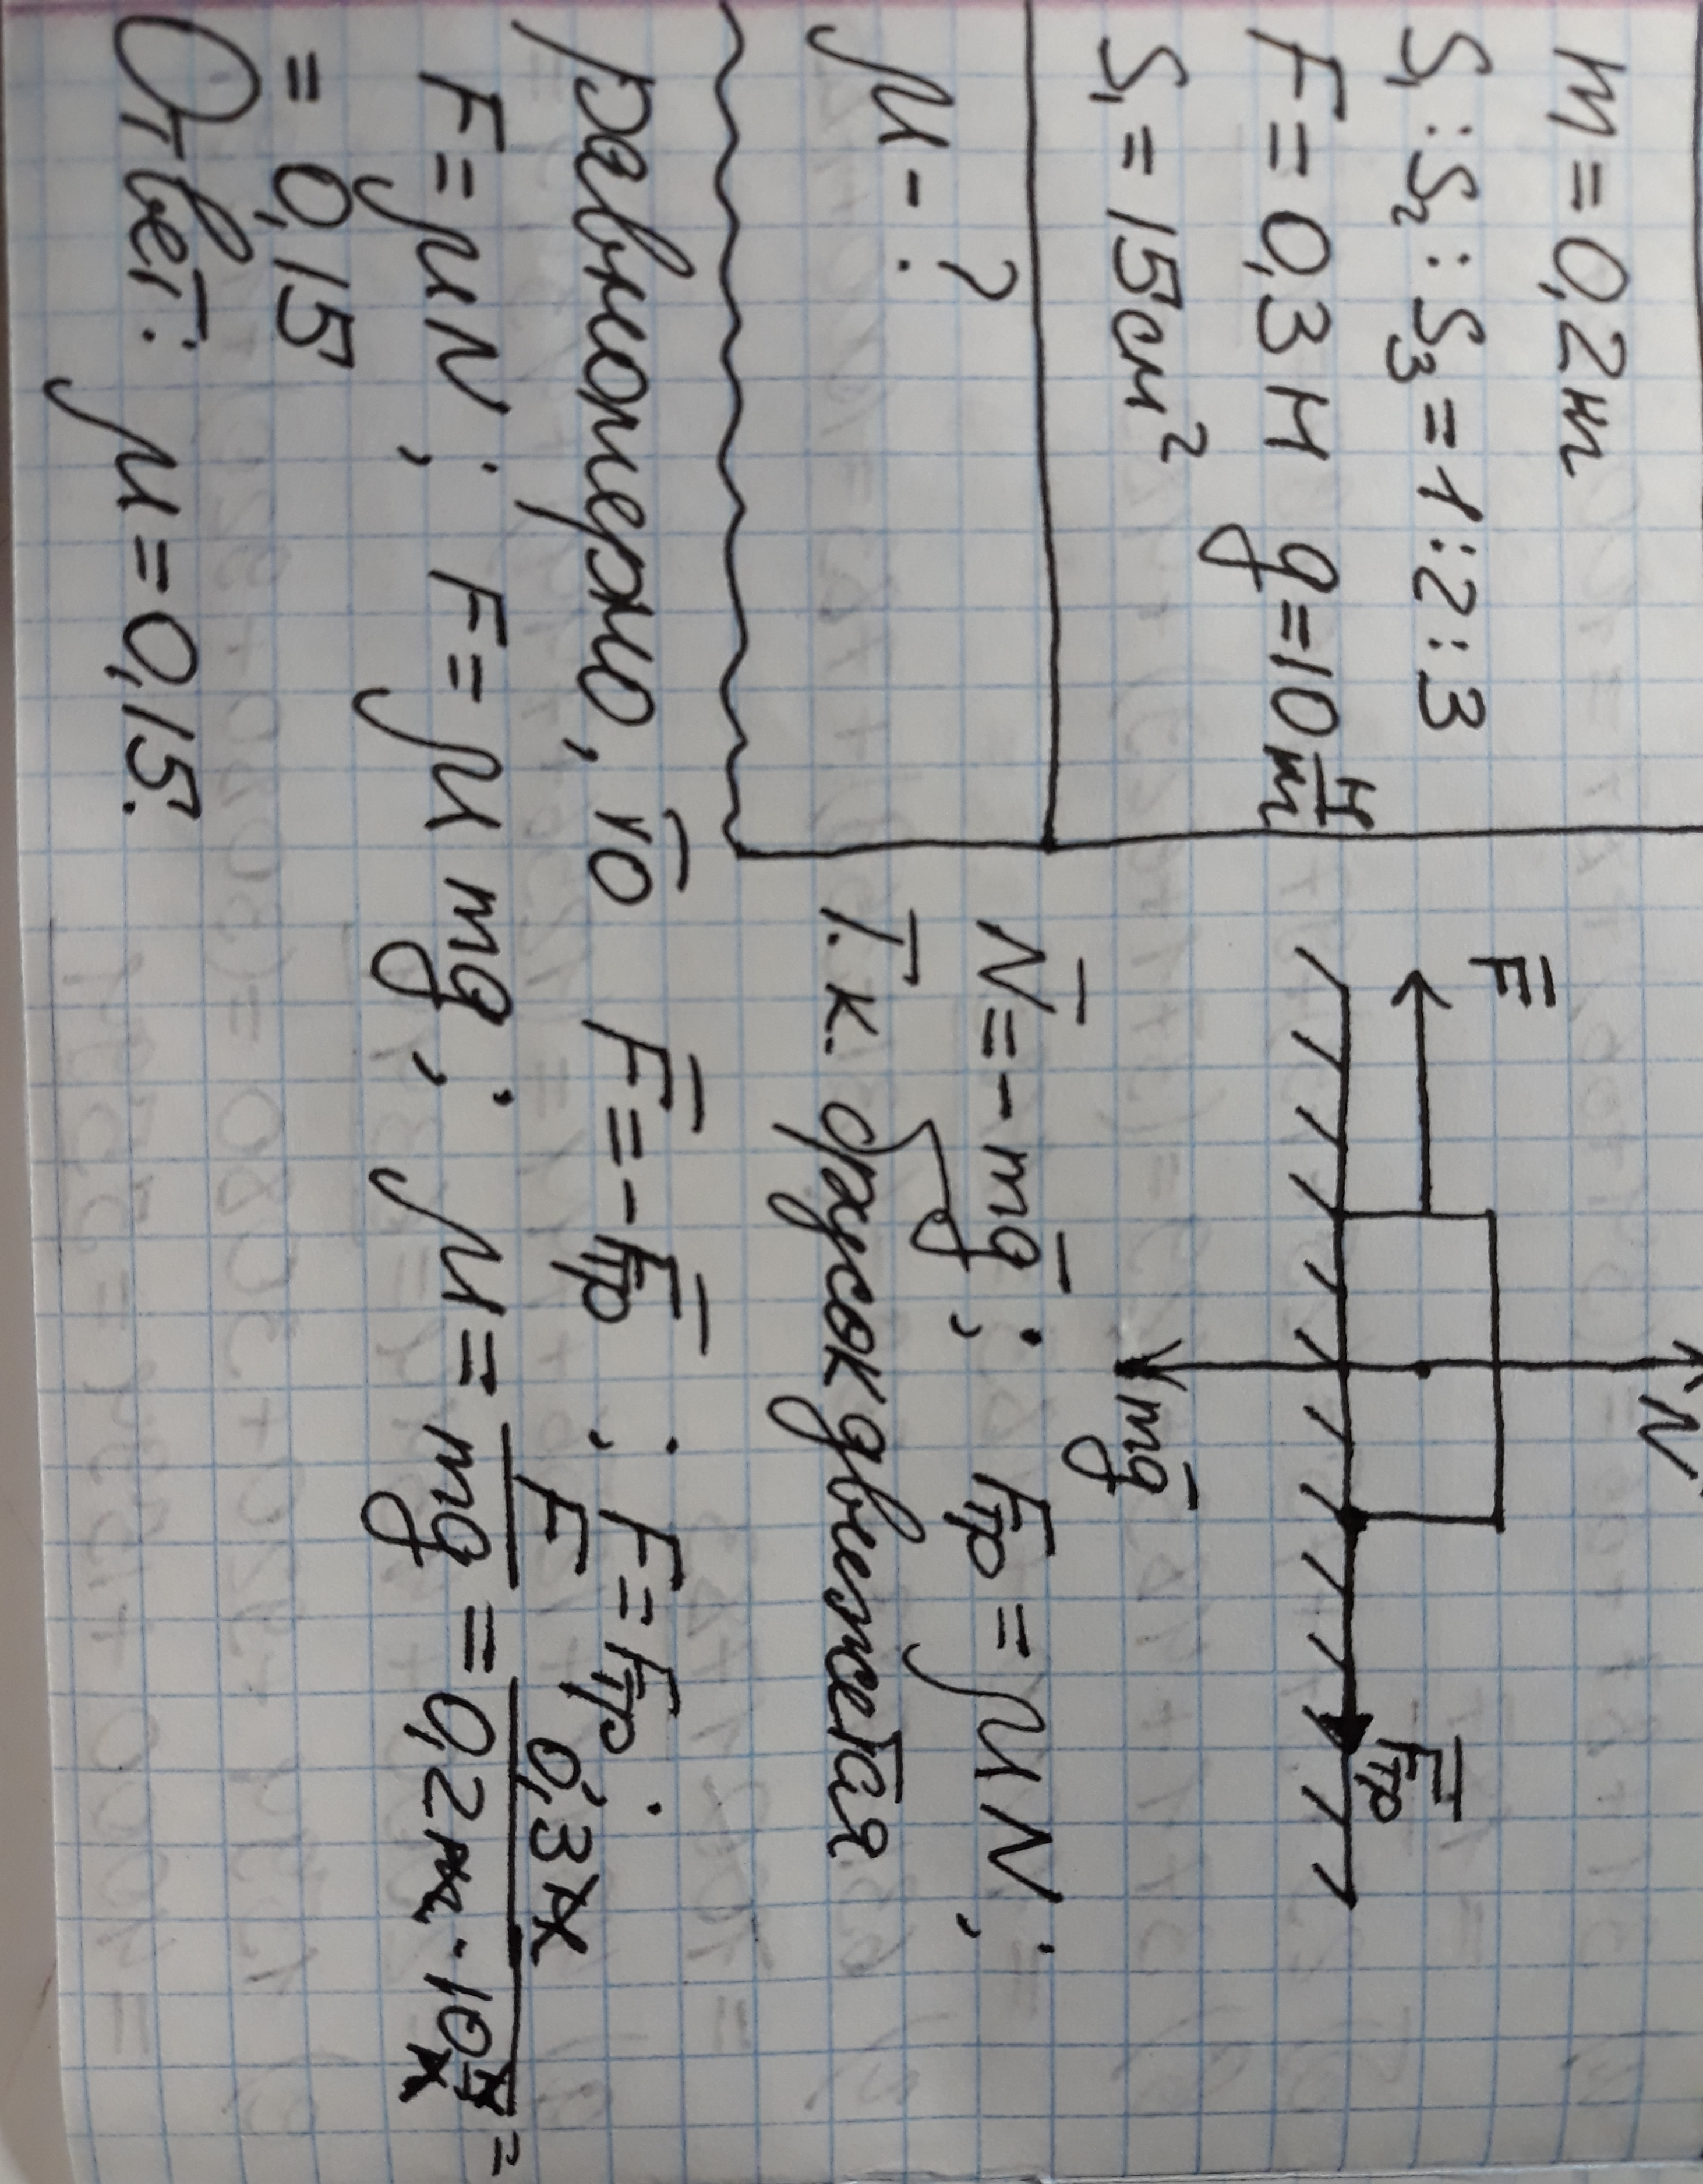 m = 0,2 кг
S₁ : S₂ : S₃ = 1 : 2 : 3
F = 0,3 Н g = 10 Н/кг
S₁ = 15 см²
μ - ?
N̄
F̄
F̄тр
mḡ
N̄ = - mḡ ; Fтр = μN ;
Т.к. брусок движется
равномерно, то F̄ = - F̄тр ; F = Fтр ;
F = μN ; F = μmg ; μ = F/mg = 0,3 Н / 0,2 кг · 10 Н/кг =
= 0,15
Ответ: μ = 0,15.